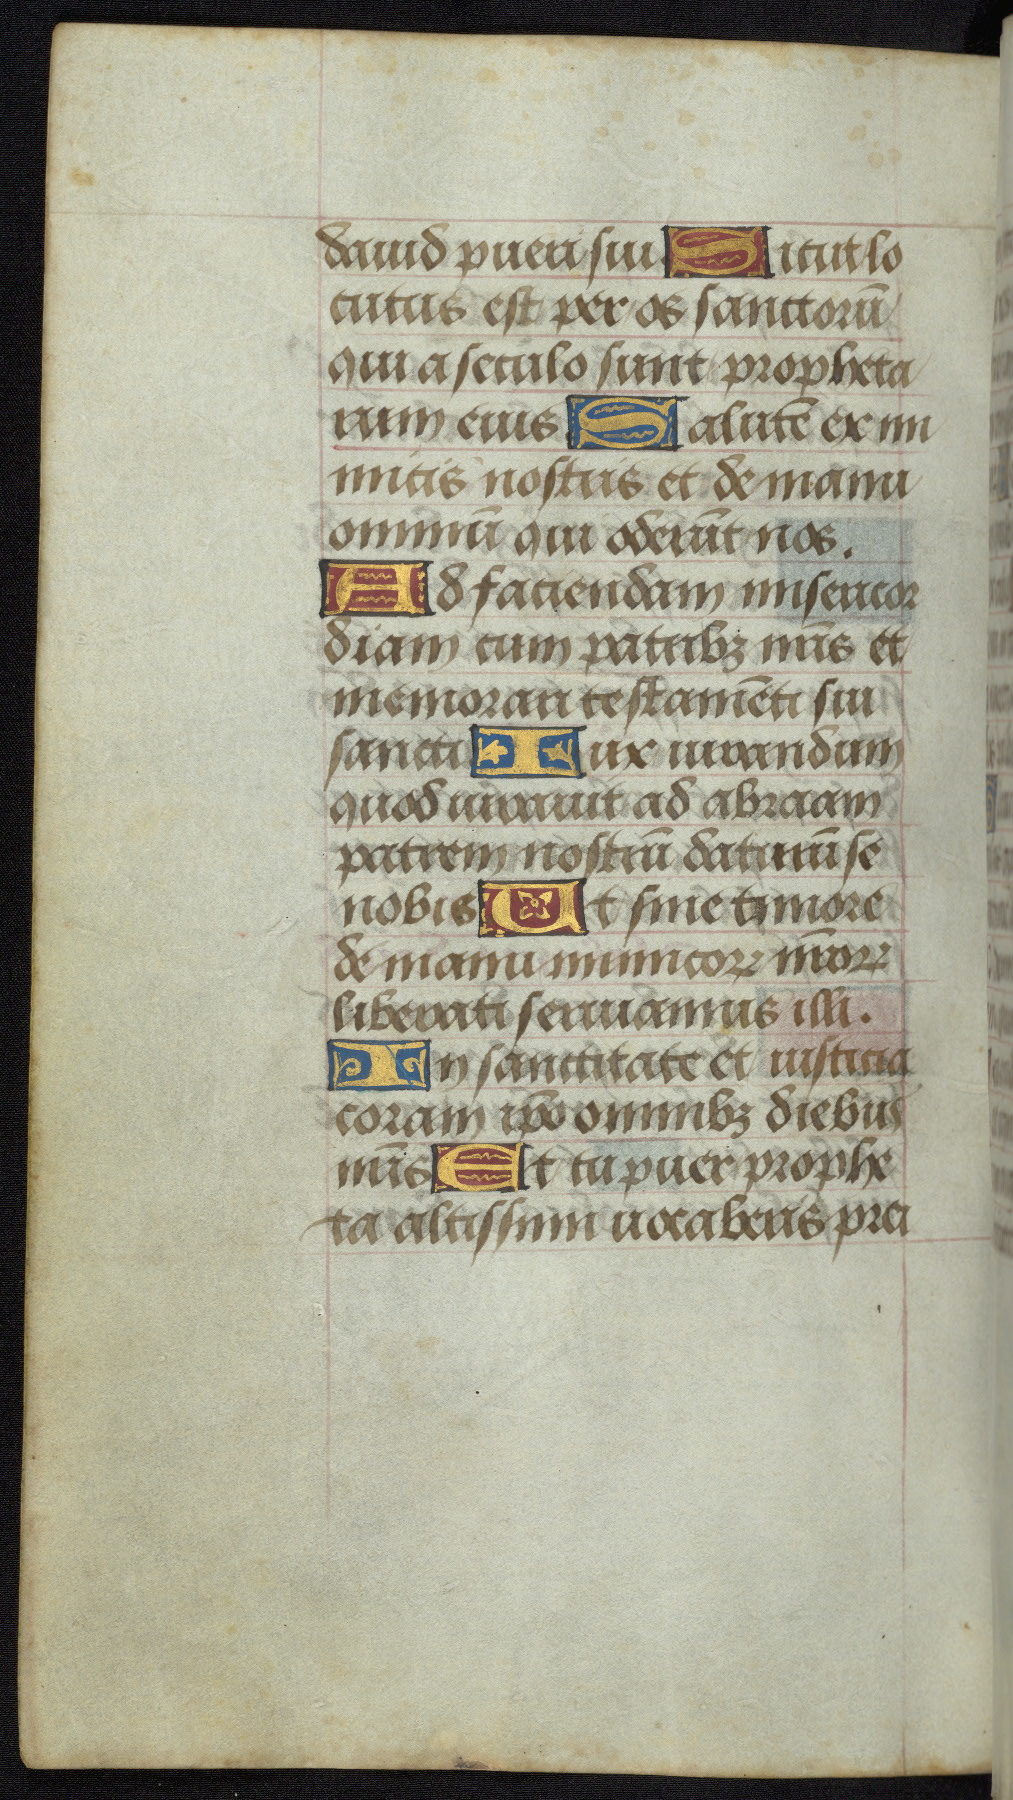 dauid pueri sui Sicut lo
cutus est per os sanctorū
qui a seculo sunt propheta
rum eius Salutē ex ini
micis nostris et de manu
omniū qui oderūt nos.
Ad faciendam misericor
diam cum patribꝫ nr̄is et
memorari testamēti sui
sancti Iux iurandum
quod iurauit ad abraam
patrem nostrū daturū se
nobis Ut sine timore
de manu inimicoꝝ nr̄oꝝ
liberati seruiamus illi.
In sanctitate et iusticia
coram ip̄o omnibꝫ diebus
nr̄is Et tu puer prophe
ta altissimi uocaberis prei